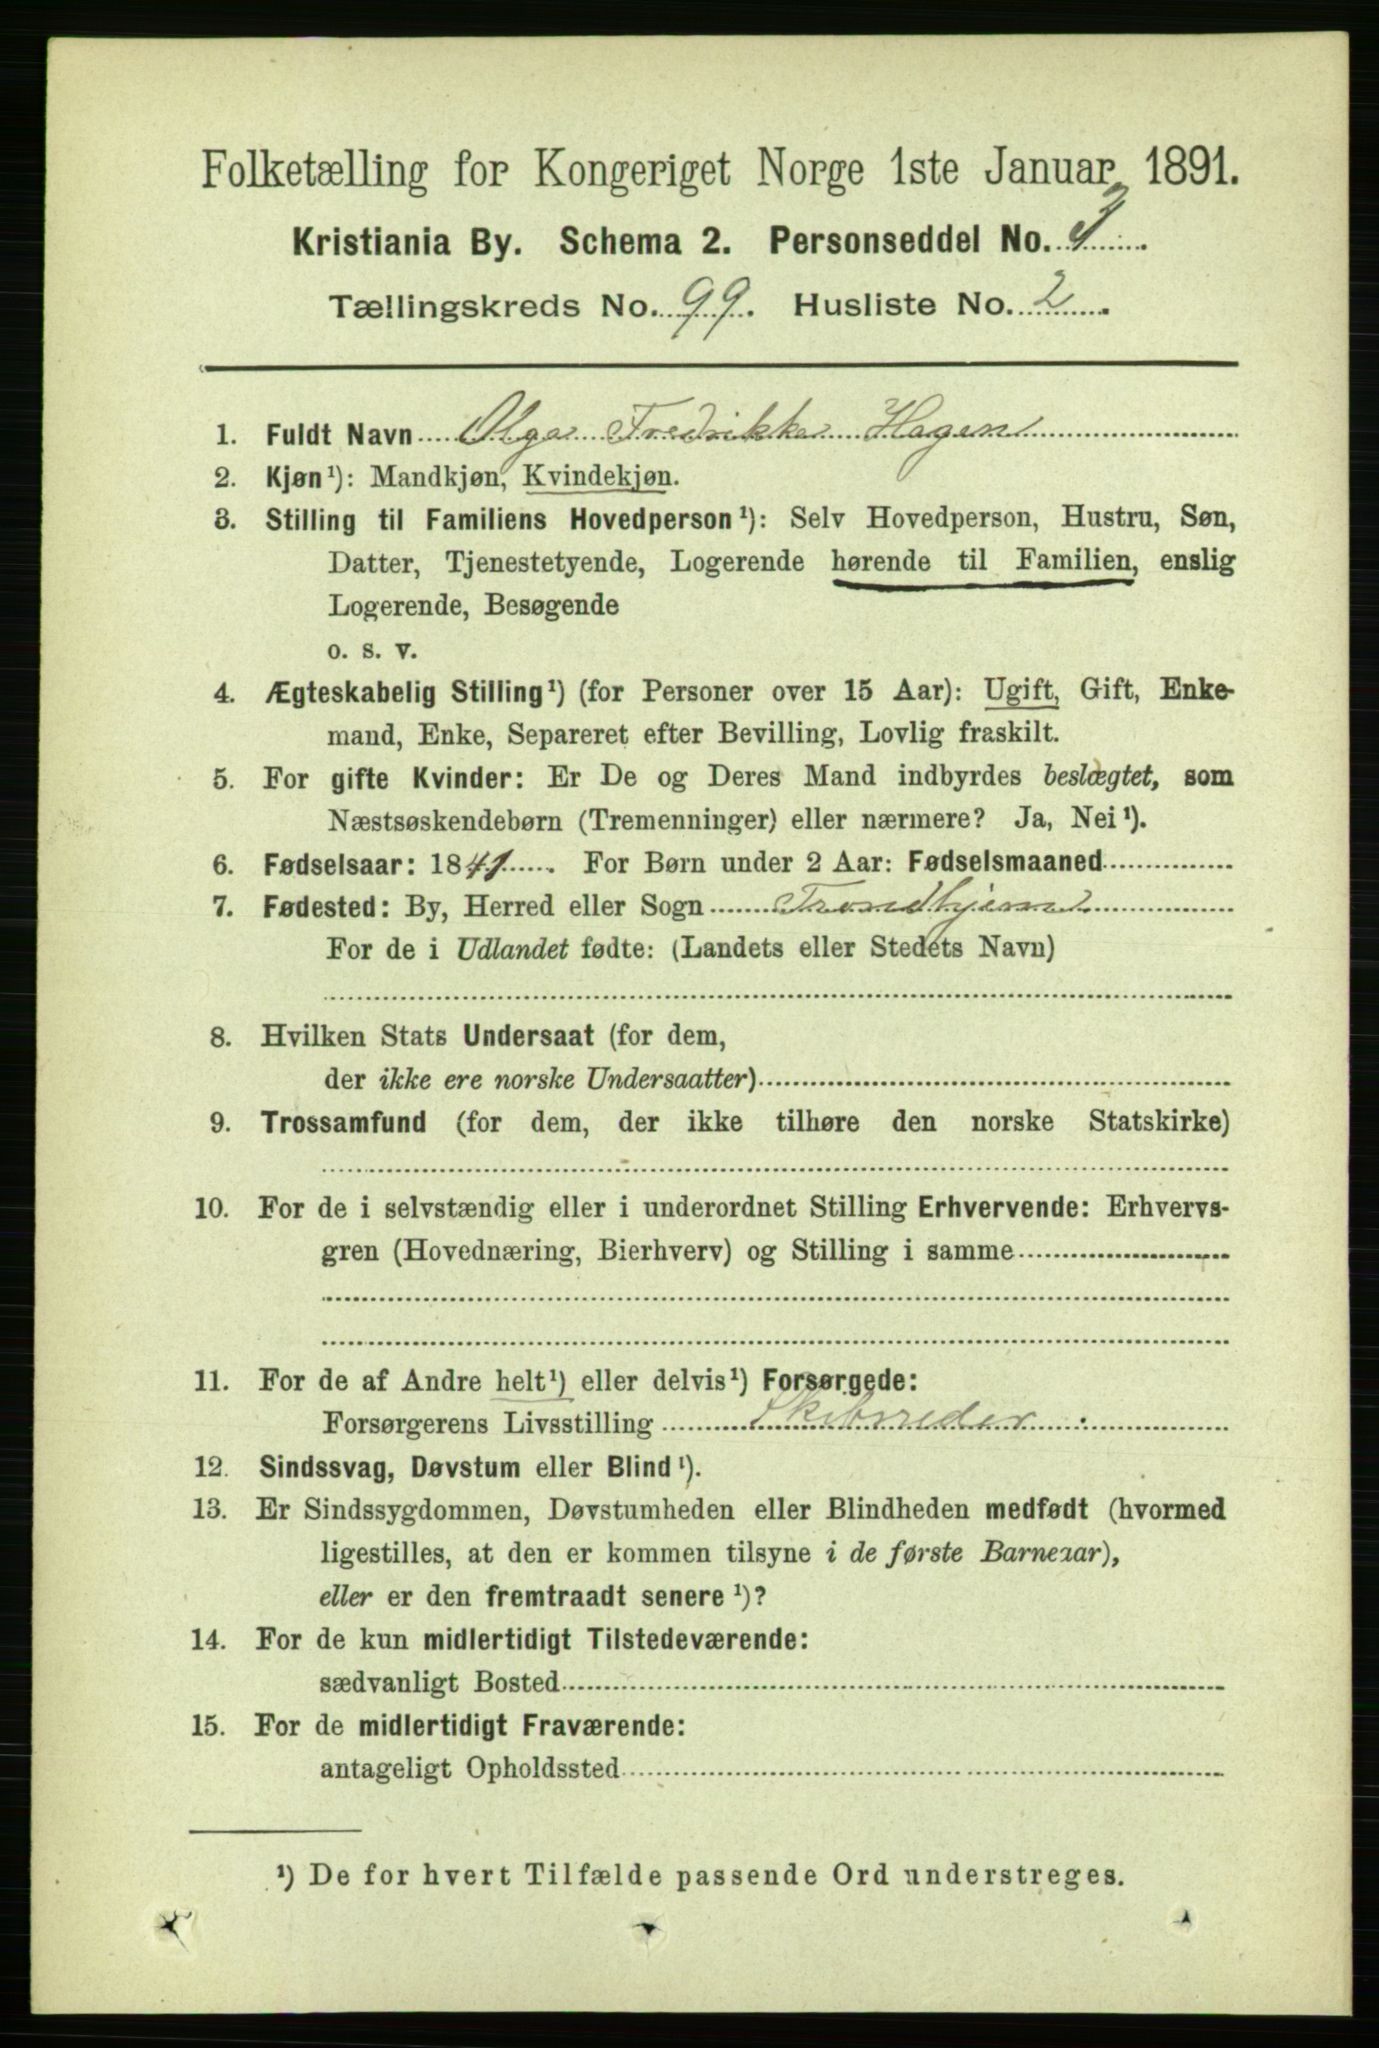 Folketælling for Kongeriget Norge 1ste Januar 1891.
Kristiania By. Schema 2. Personseddel No.
Tællingskreds No. 99. Husliste No. 2
1. Fuldt Navn Olga Fredrikke Hagen
2. Kjøn¹): Mandkjøn, Kvindekjøn.
3. Stilling til Familiens Hovedperson¹): Selv Hovedperson, Hustru, Søn,
Datter, Tjenestetyende, Logerende hørende til Familien, enslig
Logerende, Besøgende
o. s. v.
4. Ægteskabelig Stilling¹) (for Personer over 15 Aar): Ugift, Gift, Enke-
mand, Enke, Separeret efter Bevilling, Lovlig fraskilt.
5. For gifte Kvinder: Er De og Deres Mand indbyrdes beslægtet, som
Næstsøskendebørn (Tremenninger) eller nærmere? Ja, Nei¹).
6. Fødselsaar: 1841. For Børn under 2 Aar: Fødselsmaaned
7. Fødested: By, Herred eller Sogn Trondhjem
For de i Udlandet fødte: (Landets eller Stedets Navn)
8. Hvilken Stats Undersaat (for dem,
der ikke ere norske Undersaatter)
9. Trossamfund (for dem, der ikke tilhøre den norske Statskirke)
10. For de i selvstændig eller i underordnet Stilling Erhvervende: Erhvervs-
gren (Hovednæring, Bierhverv) og Stilling i samme
11. For de af Andre helt¹) eller delvis¹) Forsørgede:
Forsørgerens Livsstilling Skibsreder
12. Sindssvag, Døvstum eller Blind¹).
13. Er Sindssygdommen, Døvstumheden eller Blindheden medfødt (hvormed
ligestilles, at den er kommen tilsyne i de første Barneaar),
eller er den fremtraadt senere¹)?
14. For de kun midlertidigt Tilstedeværende:
sædvanligt Bosted
15. For de midlertidigt Fraværende:
antageligt Opholdssted
¹) De for hvert Tilfælde passende Ord understreges.